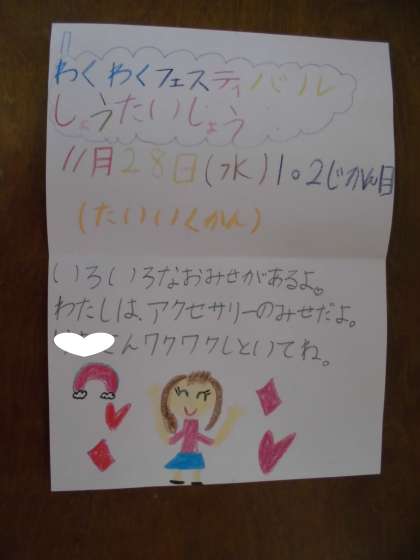 わくわくフェスティバル
しょうたいじょう
11月28日(水)1。2じかん目
(たいいくかん)
いろいろなおみせがあるよ。
わたしは、アクセサリーのみせだよ。
さんワクワクしといてね。